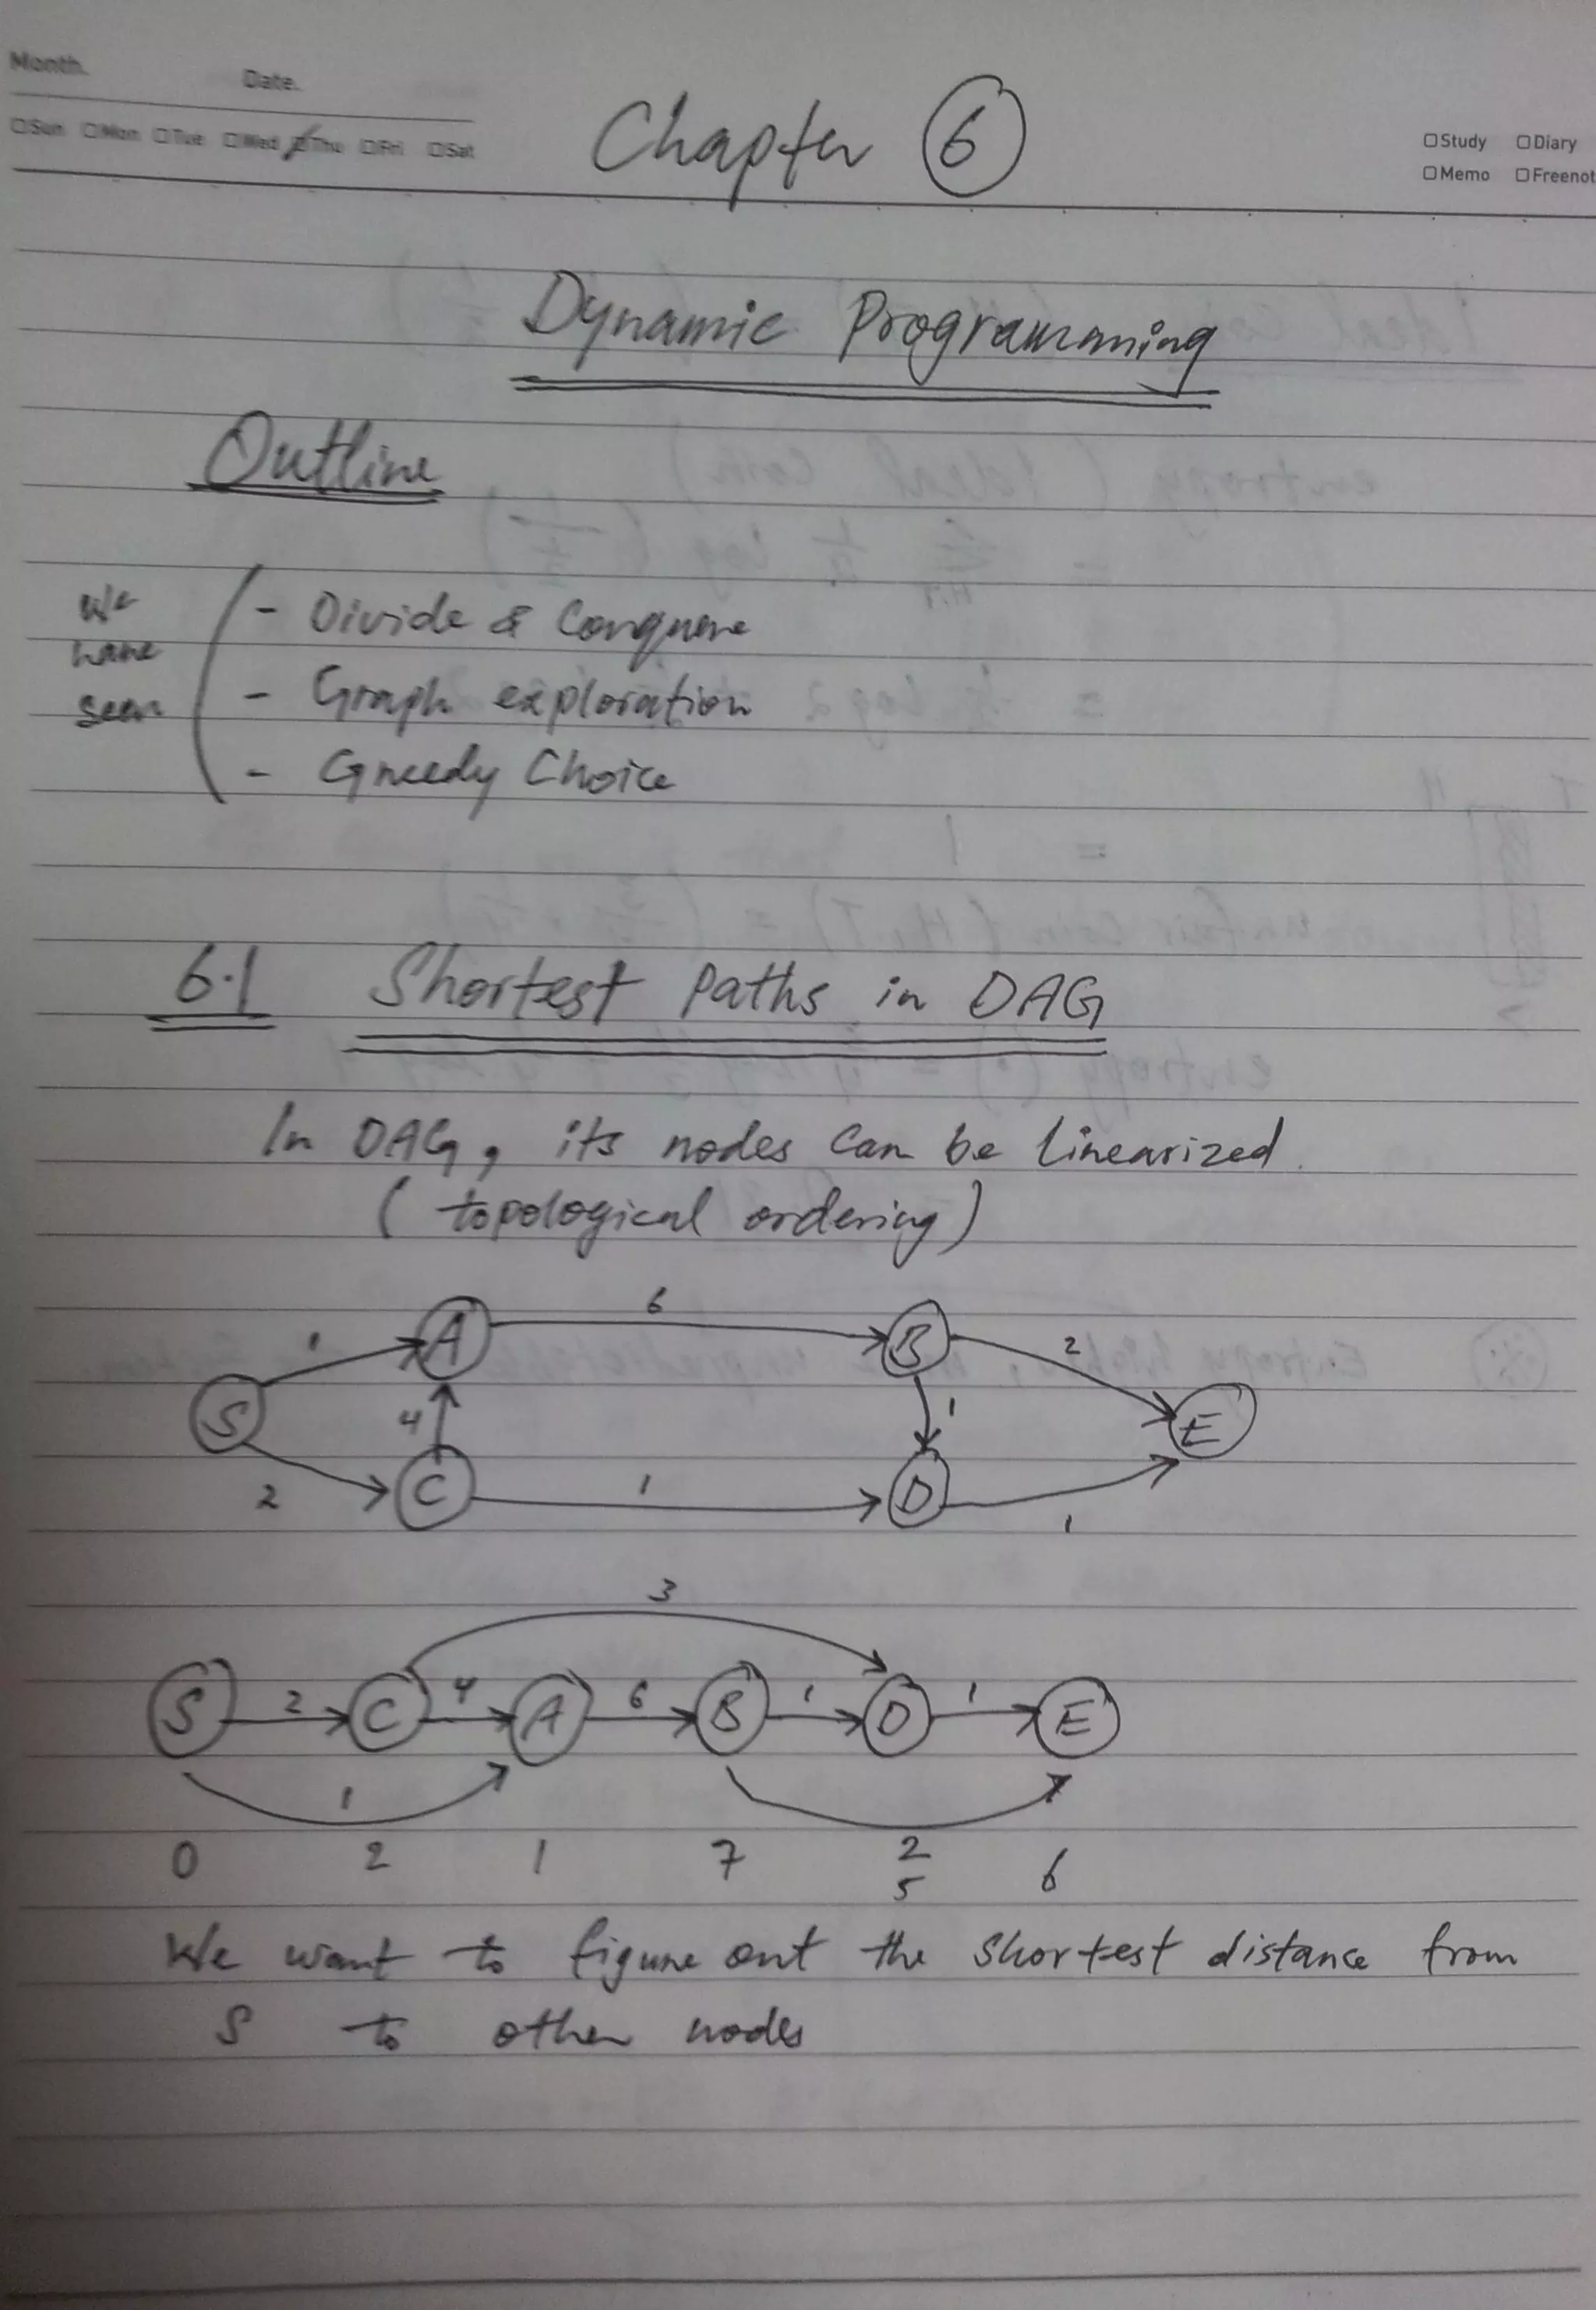 Month. Date.
Chapter 6
□Sun □Mon □Tue □Wed □Thu □Fri □Sat
□Study □Diary
□Memo □Freenot
Dynamic Programming
Outline
We have seen
- Divide & Conquere
- Graph exploration
- Greedy Choice
6.1 Shortest paths in DAG
In DAG, its nodes can be linearized.
(topological ordering)
1 A 6 B 2
S 4 1 E
2 C 1 D 1
3
S 2 C 4 A 6 B 1 D 1 E
1 2
0 2 1 7 5 6
We want to figure out the shortest distance from
S to other nodes